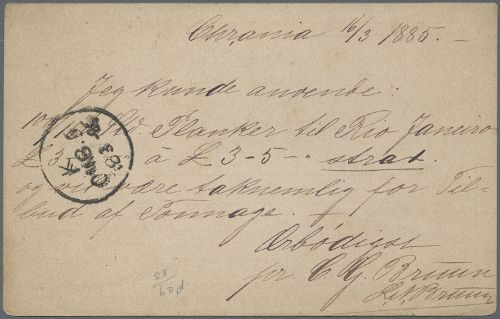 Chrania 16/3 1885.
Jeg kunde anvende:
Std. Planker til Rio Janeiro
£ 3 à £ 3-5-" strax.
og vil være taknemlig for Til-
bud af Tonnage.
Ærbödigst
pr. C. G. Bruun